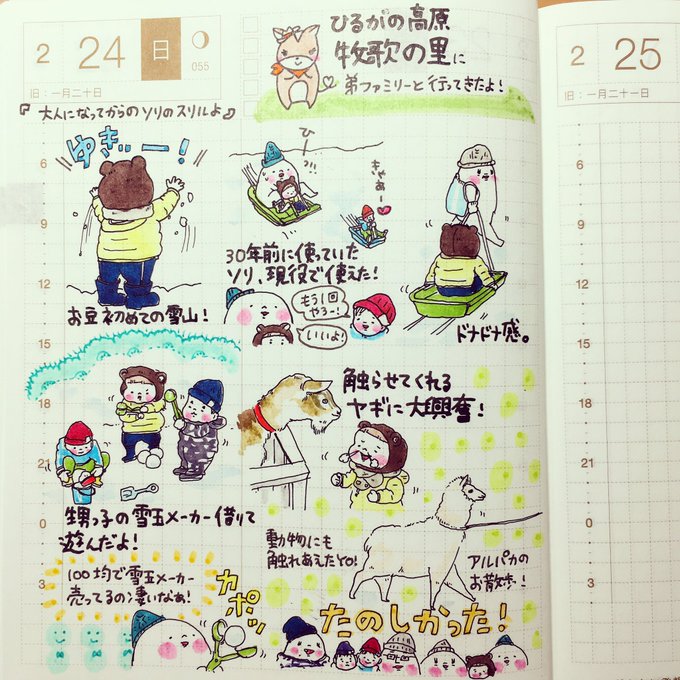 2
24
日
055
旧:一月二十日
ひるがの高原
牧歌の里に
弟ファミリーと行ってきたよ!
2
25
旧:一月二十一日
『大人になってからのソリのスリルよ』
ゆきぃー!
お豆初めての雪山!
ひーっ!!
きゃあー
30年前に使っていた
ソリ、現役で使えた!
もう1回
やろー!
いいよ!
ドナドナ感。
甥っ子の雪玉メーカー借りて
遊んだよ!
触らせてくれる
ヤギに大興奮!
動物にも
触れあえたYO!
アルパカの
お散歩!
100均で雪玉メーカー
売ってるの凄いなぁ!
カポッ
たのしかった!
6
9
12
15
18
21
0
3
6
9
12
15
18
21
0
3